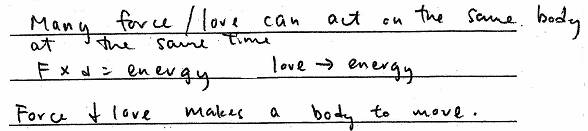 Many force / love can act on the same body
at the same time
F x d = energy love → energy
Force & love makes a body to move.